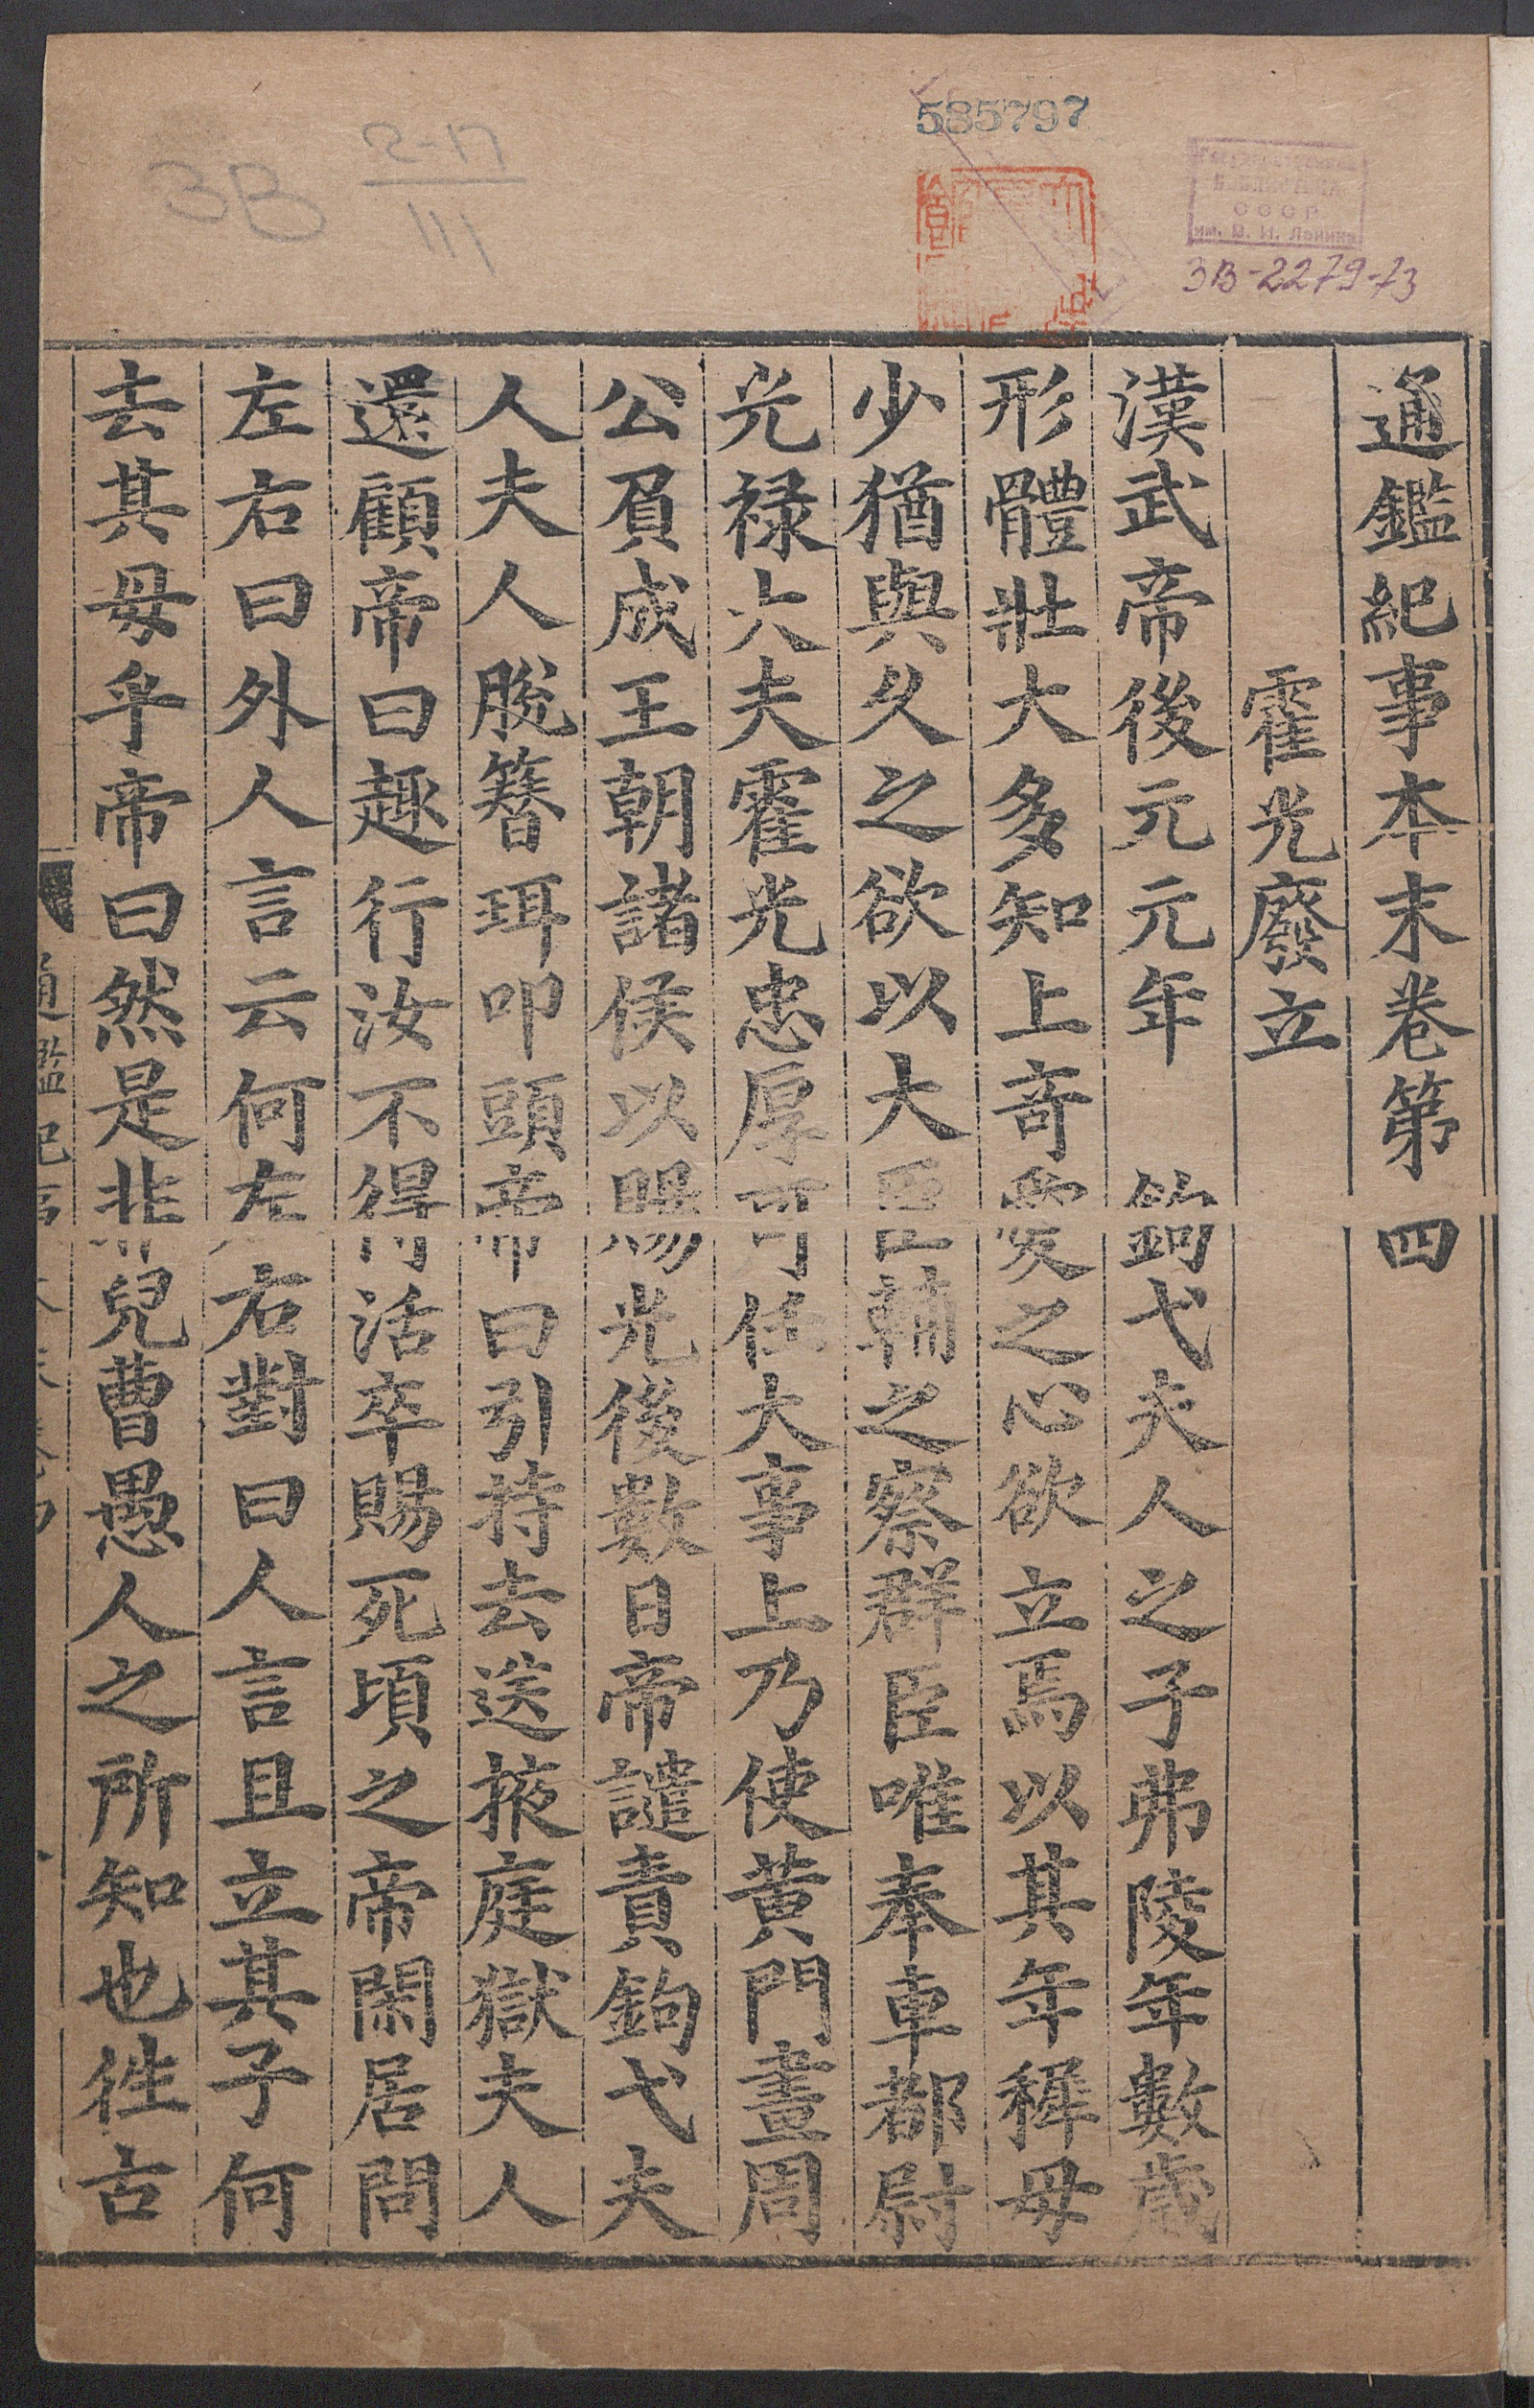 585797
3В 2-17
III
Государственная
БИБЛИОТЕКА
СССР
им. В. И. Ленина
3В-2279-73
通鑑紀事本末卷第四
霍光廢立
漢武帝後元元年 鉤弋夫人之子弗陵年數歲
形體壯大多知上奇愛之心欲立焉以其年穉母
少猶與久之欲以大臣輔之察群臣唯奉車都尉
光祿大夫霍光忠厚可任大事上乃使黃門畫周
公負成王朝諸侯以賜光後數日帝譴責鉤弋夫
人夫人脫簪珥叩頭帝曰引持去送掖庭獄夫人
還顧帝曰趣行汝不得活卒賜死頃之帝閑居問
左右曰外人言云何左右對曰人言且立其子何
去其母乎帝曰然是非兒曹愚人之所知也徃古